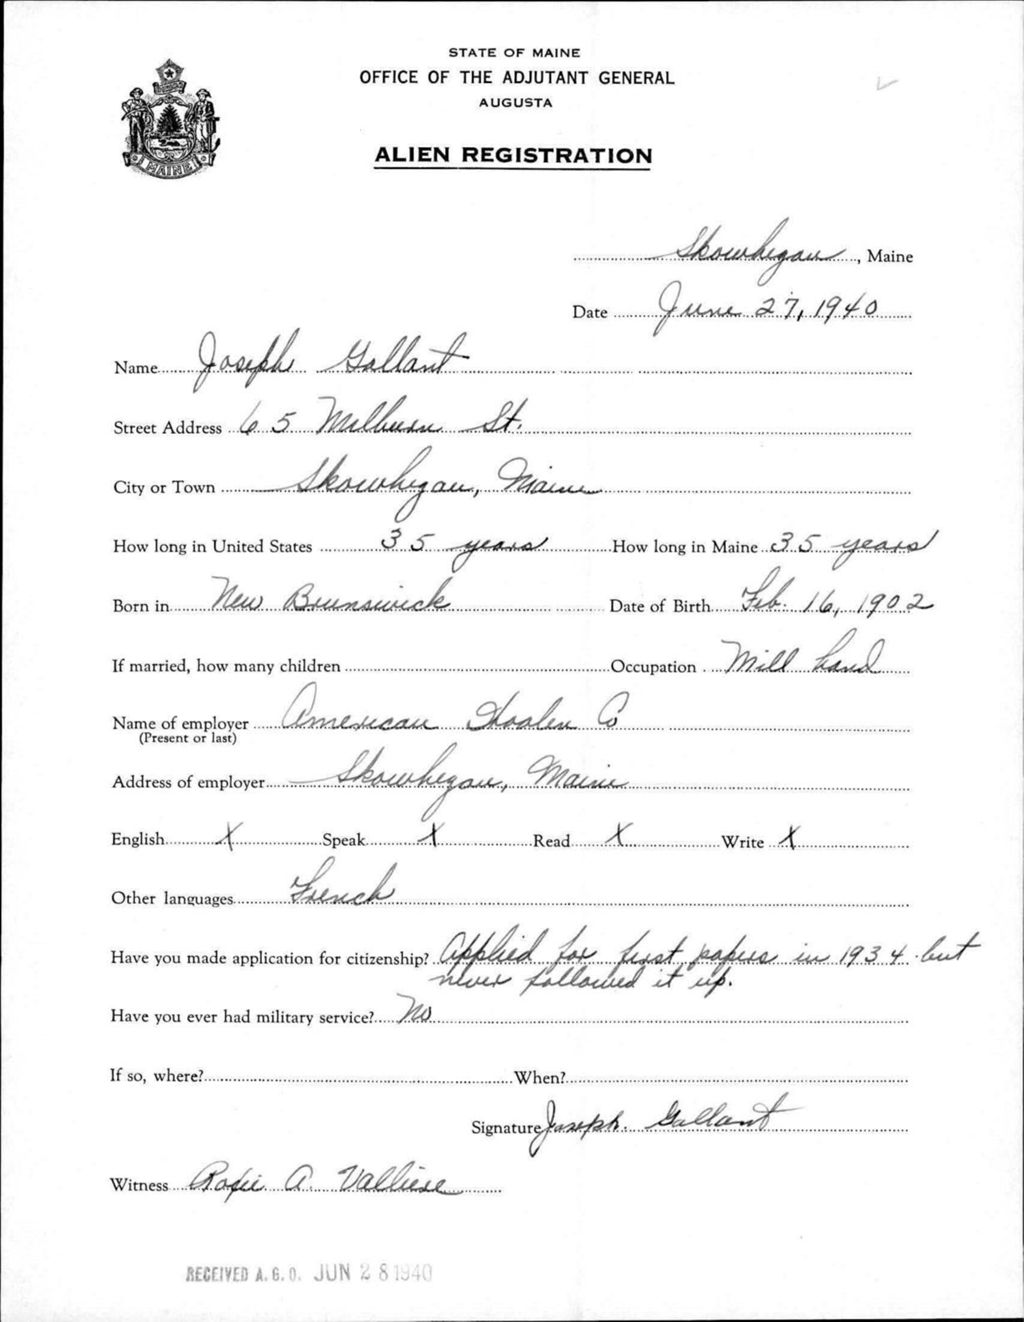 STATE OF MAINE
OFFICE OF THE ADJUTANT GENERAL
AUGUSTA
ALIEN REGISTRATION
MAINE
Skowhegan, Maine
Date June 27, 1940
Name Joseph Gallant
Street Address 65 Milburn St.
City or Town Skowhegan, Maine
How long in United States 35 years How long in Maine 35 years
Born in New Brunswick Date of Birth Feb. 16, 1902
If married, how many children Occupation Mill hand
Name of employer American Woolen Co
(Present or last)
Address of employer Skowhegan, Maine
English X Speak X Read X Write X
Other languages French
Have you made application for citizenship? Applied for first papers in 1934 but
never followed it up.
Have you ever had military service? No
If so, where? When?
Signature Joseph. Gallant
Witness A. Valliere
RECEIVED A.G.O. JUN 28 1940